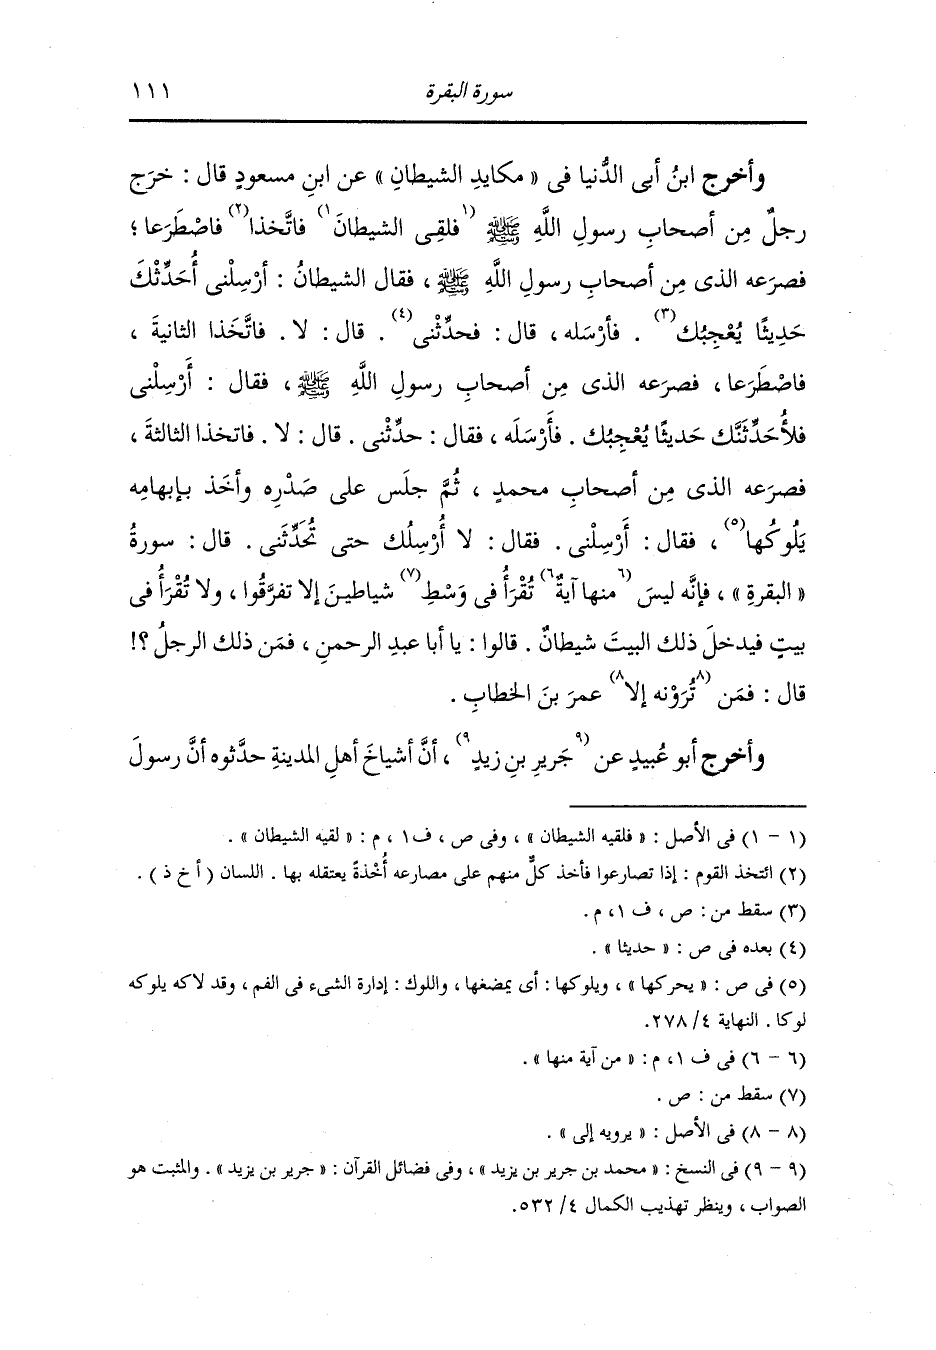 سورة البقرة ١١١
وأخرج ابنُ أبى الدُّنيا فى « مكايدِ الشيطانِ » عن ابنِ مسعودٍ قال : خرَج
رجلٌ مِن أصحابِ رسولِ اللَّهِ ﷺ (١فلقِى الشيطانَ١) فاتَّخذا(٢) فاصْطَرَعا ؛
فصرَعه الذى مِن أصحابِ رسولِ اللَّهِ ﷺ ، فقال الشيطانُ : أرْسِلْنى أُحَدِّثْكَ
حَدِيثًا يُعْجِبُك(٣) . فأرْسَله ، قال : فحدِّثْنى(٤) . قال : لا . فاتَّخَذا الثانيةَ ،
فاصْطَرَعا ، فصرَعه الذى مِن أصحابِ رسولِ اللَّهِ ﷺ ، فقال : أَرْسِلْنى
فلأُحَدِّثَنَّك حَديثًا يُعْجِبُك . فأَرْسَلَه ، فقال : حدِّثْنى . قال : لا . فاتخذا الثالثةَ ،
فصرَعه الذى مِن أصحابِ محمدٍ ، ثُمَّ جلَس على صَدْرِه وأخَذ بإبهامِه
يَلُوكُها(٥) ، فقال : أَرسِلْنى . فقال : لا أُرسِلُك حتى تُحَدِّثَنى . قال : سورةُ
« البقرةِ » ، فإنَّه ليسَ (٦منها آيةٌ٦) تُقْرَأُ فى وَسْطِ(٧) شياطينَ إلا تفرَّقُوا ، ولا تُقْرَأُ فى
بيتٍ فيدخلَ ذلك البيتَ شيطانٌ . قالوا : يا أبا عبدِ الرحمنِ ، فمَن ذلك الرجلُ ؟!
قال : فمَن (٨تُرَوْنه إلا٨) عمرَ بنَ الخطابِ .
وأخرج أبو عُبيدٍ عن (٩جَريرِ بنِ زيدٍ٩) ، أنَّ أشياخَ أهلِ المدينةِ حدَّثوه أنَّ رسولَ
(١ - ١) فى الأصل : « فلقيه الشيطان » ، وفى ص ، ف١ ، م : « لقيه الشيطان » .
(٢) ائتخذ القوم : إذا تصارعوا فأخذ كلٌّ منهم على مصارعه أُخْذةً يعتقله بها . اللسان ( أ خ ذ ) .
(٣) سقط من : ص ، ف ١، م .
(٤) بعده فى ص : « حديثا » .
(٥) فى ص : « يحركها » ، ويلوكها : أى يمضغها ، واللوك : إدارة الشىء فى الفم ، وقد لاكه يلوكه
لوكا . النهاية ٤/ ٢٧٨.
(٦ - ٦) فى ف ١، م : « من آية منها » .
(٧) سقط من : ص .
(٨ - ٨) فى الأصل : « يرويه إلى » .
(٩ - ٩) فى النسخ : « محمد بن جرير بن يزيد » ، وفى فضائل القرآن : « جرير بن يزيد » . والمثبت هو
الصواب ، وينظر تهذيب الكمال ٤/ ٥٣٢.